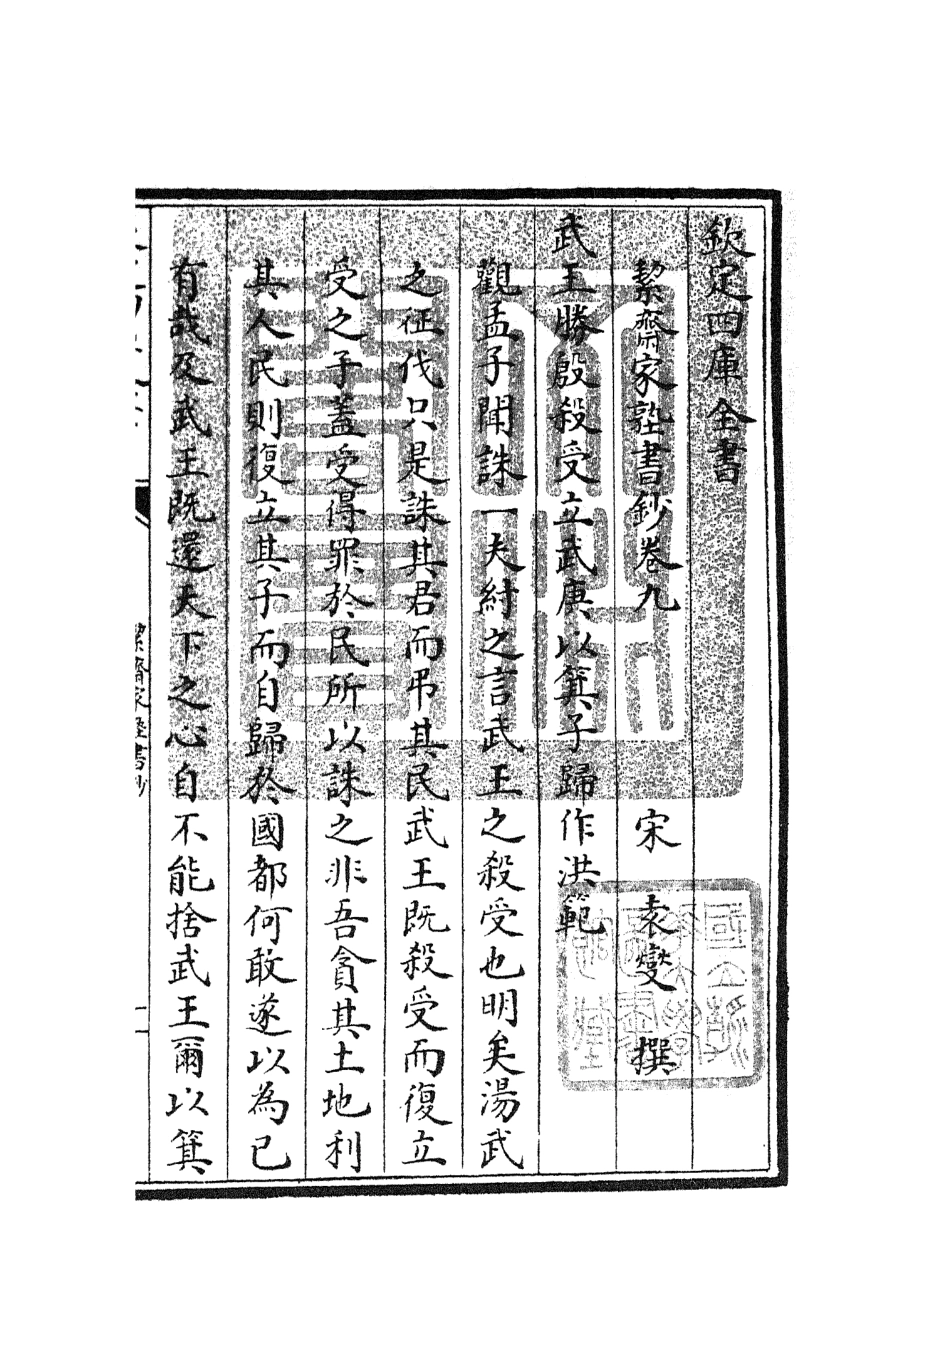 欽定四庫全書
絜齋家塾書鈔卷九
宋 袁燮 撰
武王勝殷殺受立武庚以箕子歸作洪範
觀孟子聞誅一夫紂之言武王之殺受也明矣湯武
之征伐只是誅其君而弔其民武王既殺受而復立
受之子蓋受得罪於民所以誅之非吾貪其土地利
其人民則復立其子而自歸於國都何敢遂以為己
有哉及武王既還天下之心自不能捨武王爾以箕
絜齋家塾書鈔